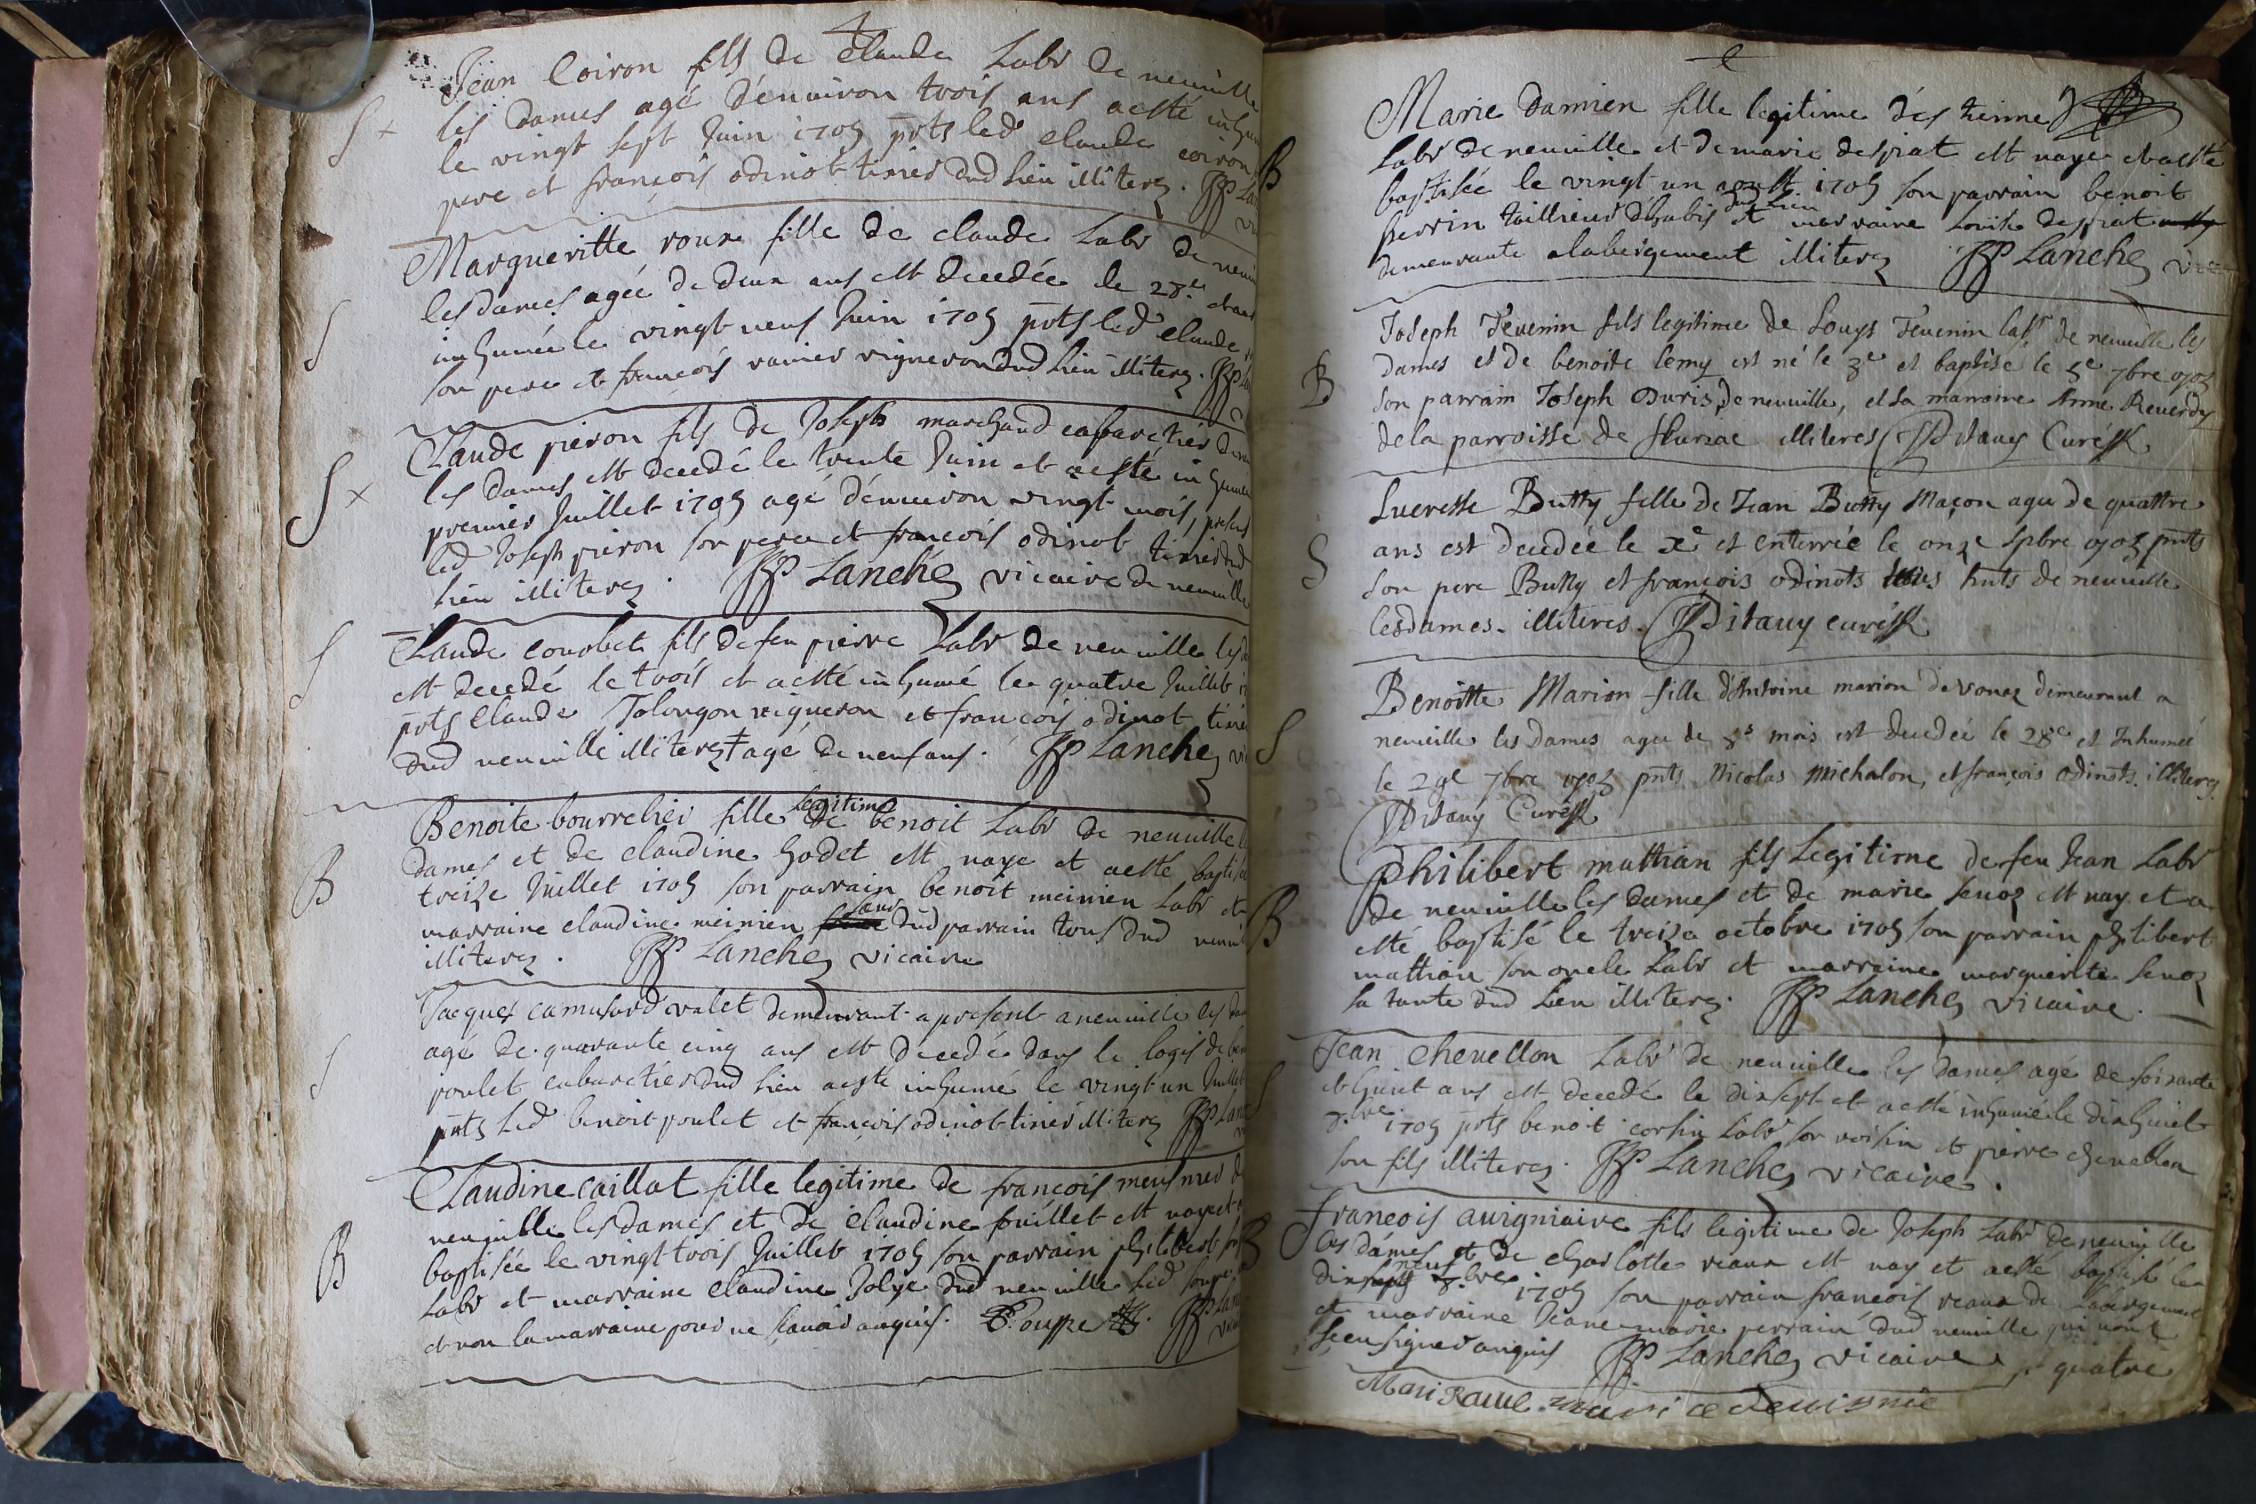 Jean Coiron fils de Claude Labr de neuville
les dames agé d'enuiron trois ans a esté inhu
le vingt sept Juin 1705 pnts led claude coiron
pere et françois odinot tixier dud lieu illiterez. JP La
Margueritte roux fille de claude Labr de neuui
les dames agée de deux ans est decedée le 28e et a est
inhumée le vingt neuf Juin 1705 pnts led claude
son pere et françois vanier vigneron dud lieu illiterez. JP La
Claude pieron fils de Joseph marchand cabaretier de neu
les dames est decedé le trente Juin et a esté inhumé
premier Juillet 1705 agé d'enuiron vingt mois, presens
led Joseph pieron son pere et françois odinot tixier dud
lieu illiterez. JP Lanchez vicaire de neuuille
Claude conobet fils de feu pierre Labr de neuuille les d
est decedé le trois et a esté inhumé le quatre Juillet 1
pnts Claude Tolongon vigneron et françois odinot tixie
dud neuuille illiterez + agé de neuf ans. JP Lanchez vi
Benoite bourrelier fille legitime de benoit Labr de neuuille le
dames et de claudine godet est naye et a esté baptisé
treize Juillet 1705 son parrain benoit meinien Labr et
marraine claudine meinien soeur dud parrain tous dud neuui
illiterez. JP Lanchez vicaire
Jacques camusard valet demeurant a present a neuuille les da
agé de quarante cinq ans est decedé dans le logis de ben
poulet cabaretier dud lieu a esté inhumé le vingt un Juillet
pnts led benoit poulet et françois odinot tixier illiterez JP Lanc
Claudine caillat fille legitime de françois meusnier d
neuuille les dames et de claudine fuillet est naye et
baptisée le vingt trois Juillet 1705 son parrain philibert
Labr et marraine claudine Jolye dud neuuille led soupe
et non la marraine pour ne sçauoir enquis. P. ouppe. JP Lan
Marie Damien fille legitime d'estienne D
Labr de neuuille et de marie despiat est naye et a esté
baptisée le vingt un aoust 1705 son parrain benoit
perrin taillieur d'habis dud lieu et marraine Louise despiat
demeurante a labergement illiterez JP Lanchez vicai
Joseph Teuenin fils legitime de Louys Teuenin labr de neuuille les
dames et de benoite Lemy est né le 3e et baptisé le 5e 7bre 1705
son parrain Joseph Duris de neuuille, et sa marraine Anne Reuerdy
de la parroisse de illiteres Ditauy Curé
Lucresse Butty fille de Jean Butty Maçon agée de quattre
ans est decedée le xe et enterrée le onze 7pbre 1705 pnts
son pere Butty et françois odinots hnts de neuuille
lesdames. illiteres. Ditauy curé
Benoitte Marion fille d'Antoine marion de vonas demeurant a
neuuille les dames agée de 8 mois est decedée le 28e et Inhumée
le 29e 7bre 1705 pnts Nicolas Michalon, et françois odinots. illiterez.
Ditauy Curé
Philibert matthian fils Legitime de feu Jean Labr
de neuuille les dames et de marie seuoz est nay et a
esté baptisé le treize octobre 1705 son parrain philibert
matthian son oncle Labr et marraine marguerite seuoz
sa tante dud lieu illiterez. JP Lanchez vicaire.
Jean cheuellon Labr de neuuille les dames agé de soixante
et huict ans est decedé le dixsept et a esté inhumé le dixhuict
8bre 1705 pnts benoit corsin Labr son voisin et pierre cheuellon
son fils illiterez. JP Lanchez vicaire.
francois auigniaire fils legitime de Joseph Labr de neuuille
les dames et de charlotte reaux est nay et a esté baptisé le
dix neuf 8bre 1705 son parrain francois reaux de labergement
et marraine Jeane marie perrain dud neuuille qui n'ont
sceu signer enquis JP Lanchez vicaire quatre